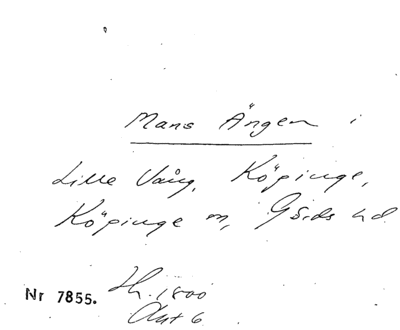 Mans Ängen i
Lille Vång, Köpinge,
Köpinge sn, Gärds hd
Nr 7855. H. 1800
Akt 6